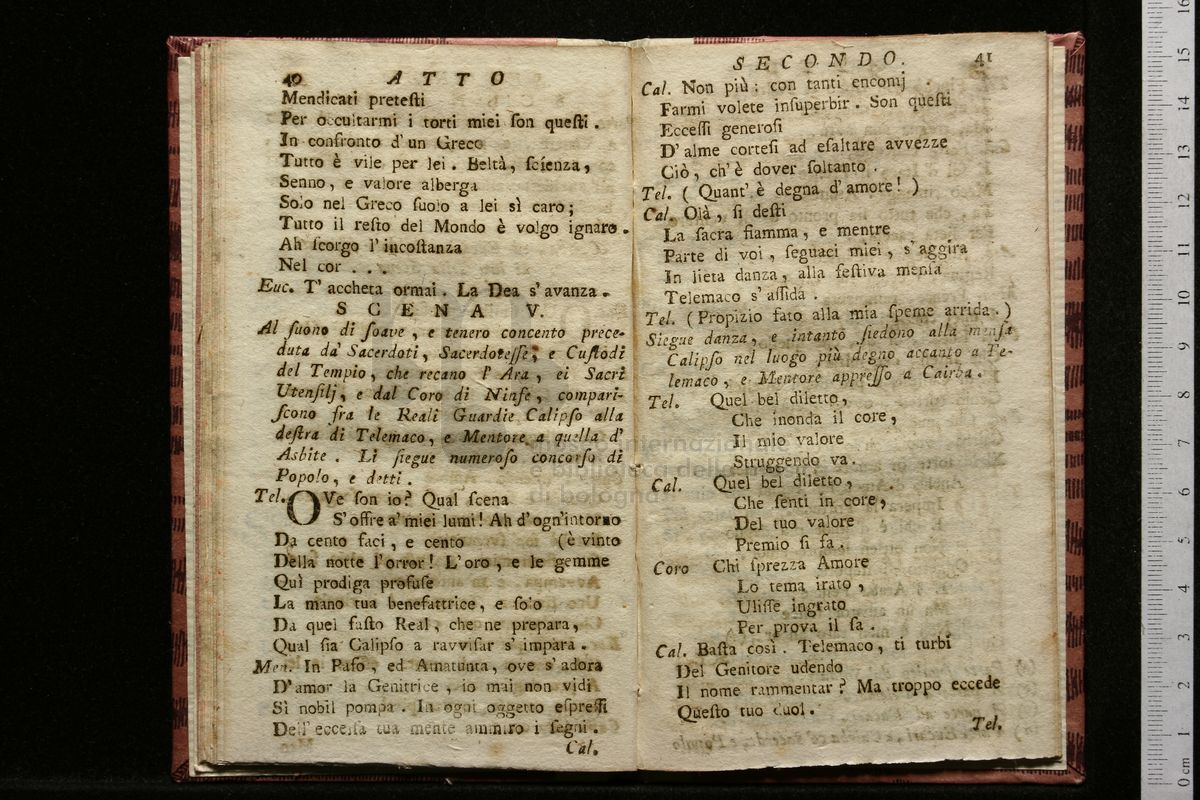 40 ATTO
Mendicati pretesti
Per occultarmi i torti miei son questi.
In confronto d'un Greco
Tutto è vile per lei. Beltà, scienza,
Senno, e valore alberga
Solo nel Greco suolo a lei sì caro;
Tutto il resto del Mondo è volgo ignaro.
Ah scorgo l'incostanza
Nel cor . . .
Euc. T'accheta ormai. La Dea s'avanza.
SCENA V.
Al suono di soave, e tenero concento prece-
duta da' Sacerdoti, Sacerdotesse, e Custodi
del Tempio, che recano l'Ara, ei Sacri
Utensilj, e dal Coro di Ninfe, compari-
scono fra le Reali Guardie Calipso alla
destra di Telemaco, e Mentore a quella d'
Asbite. Li siegue numeroso concorso di
Popolo, e detti.
Tel. OVe son io? Qual scena
S'offre a' miei lumi! Ah d'ogn'intorno
Da cento faci, e cento (è vinto
Della notte l'orror! L'oro, e le gemme
Quì prodiga profuse
La mano tua benefattrice, e solo
Da quel fasto Real, che ne prepara,
Qual sia Calipso a ravvisar s'impara.
Men. In Pafo, ed Amatunta, ove s'adora
D'amor la Genitrice, io mai non vidi
Sì nobil pompa. In ogni oggetto espressi
Dell'eccelsa tua mente ammiro i segni.
Cal.
SECONDO. 41
Cal. Non più: con tanti encomj
Farmi volete insuperbir. Son questi
Eccessi generosi
D'alme cortesi ad esaltare avvezze
Ciò, ch'è dover soltanto.
Tel. (Quant'è degna d'amore!)
Cal. Olà, si desti
La sacra fiamma, e mentre
Parte di voi, seguaci miei, s'aggira
In lieta danza, alla festiva mensa
Telemaco s'assida.
Tel. (Propizio fato alla mia speme arrida.)
Siegue danza, e intanto siedono alla mensa
Calipso nel luogo più degno accanto a Te-
lemaco, e Mentore appresso a Cairba.
Tel. Quel bel diletto,
Che inonda il core,
Il mio valore
Struggendo va.
Cal. Quel bel diletto,
Che senti in core,
Del tuo valore
Premio si fa.
Coro Chi sprezza Amore
Lo tema irato,
Ulisse ingrato
Per prova il sa.
Cal. Basta così. Telemaco, ti turbi
Del Genitore udendo
Il nome rammentar? Ma troppo eccede
Questo tuo duol.
Tel.